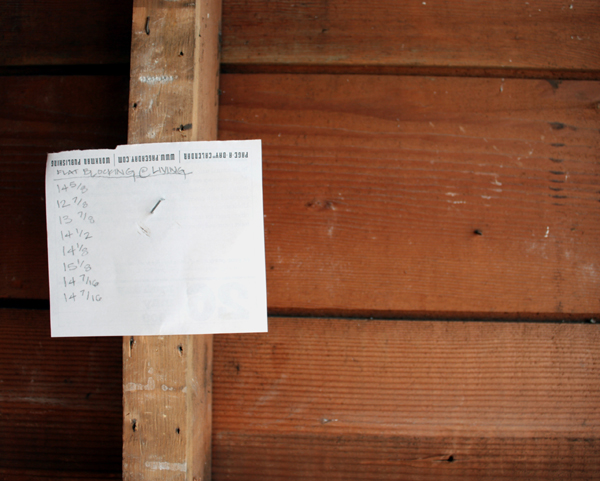 PAGE-A-DAY CALENDAR | WWW.PAGEADAY.COM | WORKMAN PUBLISHING
FLAT BLOCKING @ LIVING
14 5/8
12 7/8
15 7/8
14 1/2
14 1/8
15 1/8
14 7/16
14 7/16